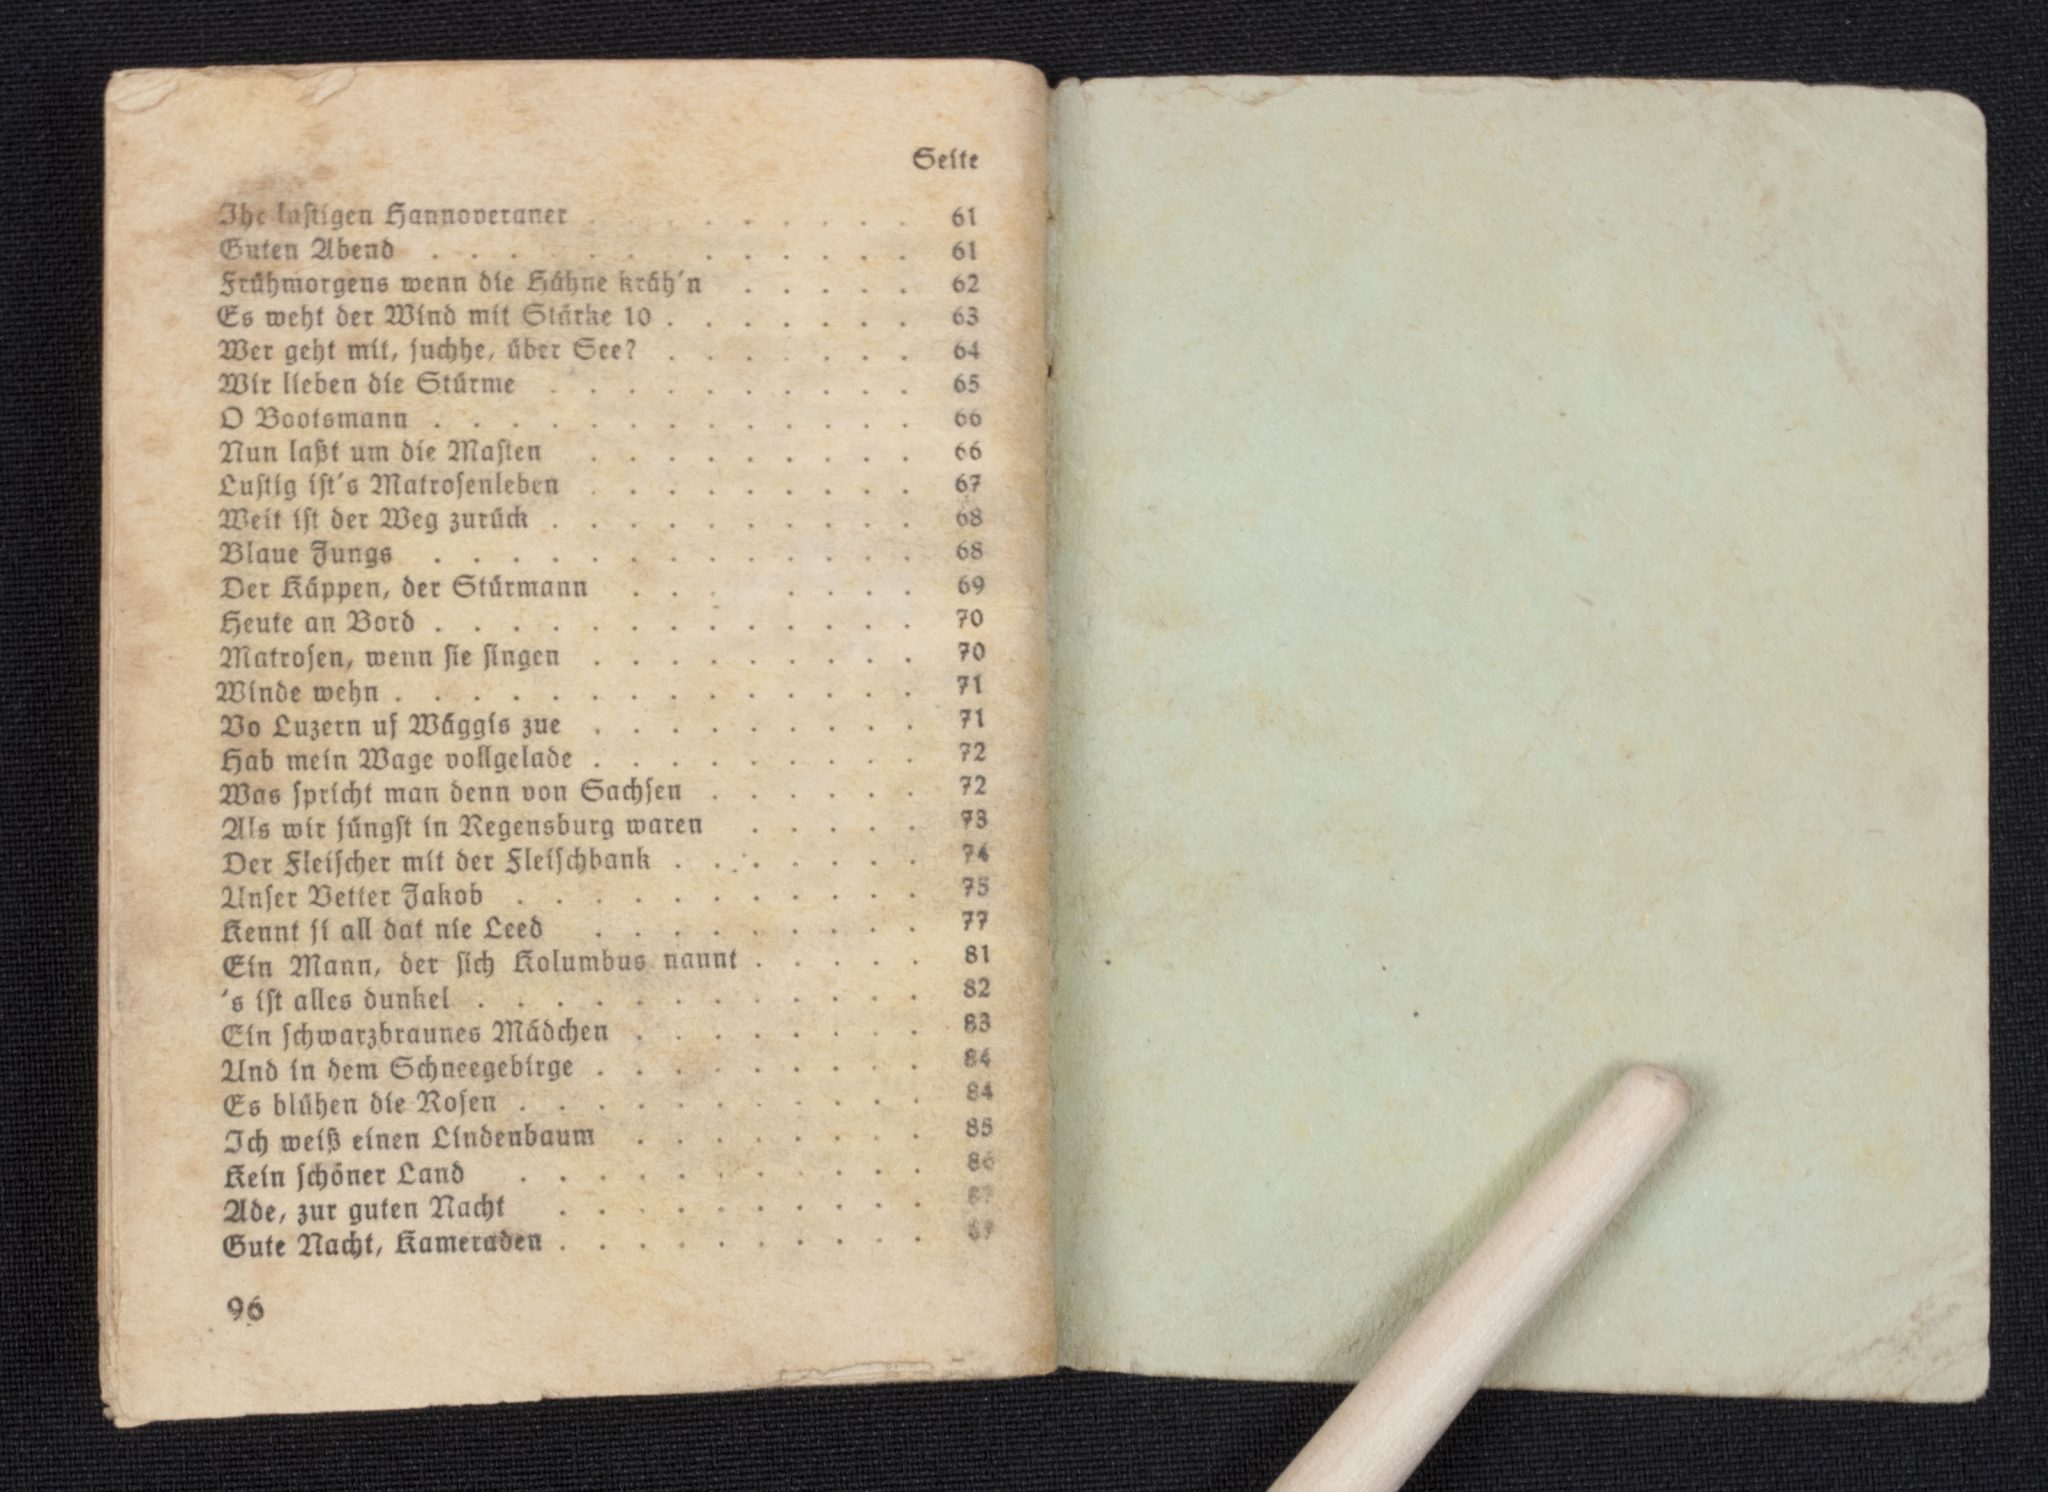 Seite
Ihr lustigen Hannoveraner . . . . . . . . . 61
Guten Abend . . . . . . . . . . . . . 61
Frühmorgens wenn die Hähne kräh'n . . . . . 62
Es weht der Wind mit Stärke 10 . . . . . . . 63
Wer geht mit, juchhe, über See? . . . . . . . 64
Wir lieben die Stürme . . . . . . . . . . 65
O Bootsmann . . . . . . . . . . . . . 66
Nun laßt um die Masten . . . . . . . . . 66
Lustig ist's Matrosenleben . . . . . . . . . 67
Weit ist der Weg zurück . . . . . . . . . . 68
Blaue Jungs . . . . . . . . . . . . . 68
Der Käppen, der Stürmann . . . . . . . 69
Heute an Bord . . . . . . . . . . . . . 70
Matrosen, wenn sie singen . . . . . . . . . 70
Winde wehn . . . . . . . . . . . . . . 71
Vo Luzern uf Wäggis zue . . . . . . . . . 71
Hab mein Wage vollgelade . . . . . . . . . 72
Was spricht man denn von Sachsen . . . . . . 72
Als wir jüngst in Regensburg waren . . . . . 73
Der Fleischer mit der Fleischbank . . . . . . . 74
Unser Vetter Jakob . . . . . . . . . . . 75
Kennt ji all dat nie Leed . . . . . . . . . 77
Ein Mann, der sich Kolumbus nannt . . . . . 81
's ist alles dunkel . . . . . . . . . . . . 82
Ein schwarzbraunes Mädchen . . . . . . . . 83
Und in dem Schneegebirge . . . . . . . . . 84
Es blühen die Rosen . . . . . . . . . . . 84
Ich weiß einen Lindenbaum . . . . . . . . 85
Kein schöner Land . . . . . . . . . . . 86
Ade, zur guten Nacht . . . . . . . . . . 87
Gute Nacht, Kameraden . . . . . . . . . .
96